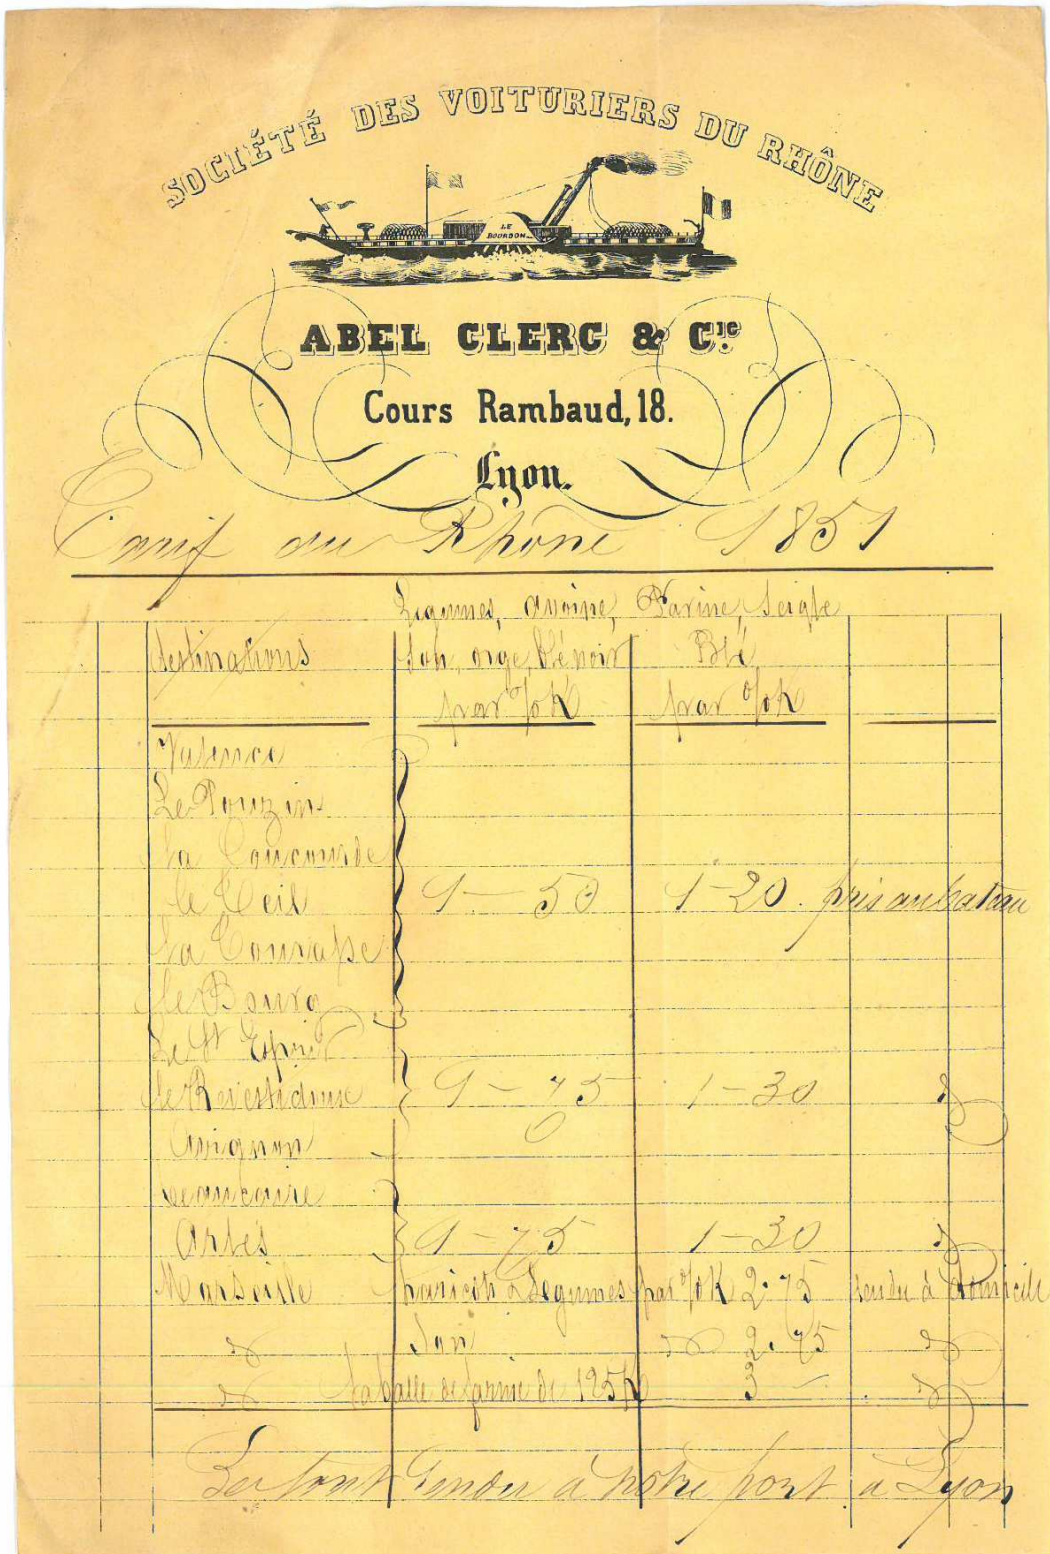 SOCIÉTÉ DES VOITURIERS DU RHÔNE
LE
BOURBON
ABEL CLERC & Cie.
Cours Rambaud, 18.
Lyon.
Tarif du Rhône 1851
Légumes, avoine, Farine, Seigle
destinations Son, orge, blé noir Blé
par %oK par %oK
Valence
Le Pouzin
la Coucourde
le Teil 1-50 1-20. pris au bateau
le Bourg
Le St Esprit
1-75 1-30 d°
Avignon
Beaucaire
Arles 1-75 1-30 d°
Marseille haricots & Légumes par %oK 2.75 rendu à domicile
d° Son d° 2.75 d°
d° la balle de farine de 125K 3 - d°
Le tout rendu à notre port à Lyon